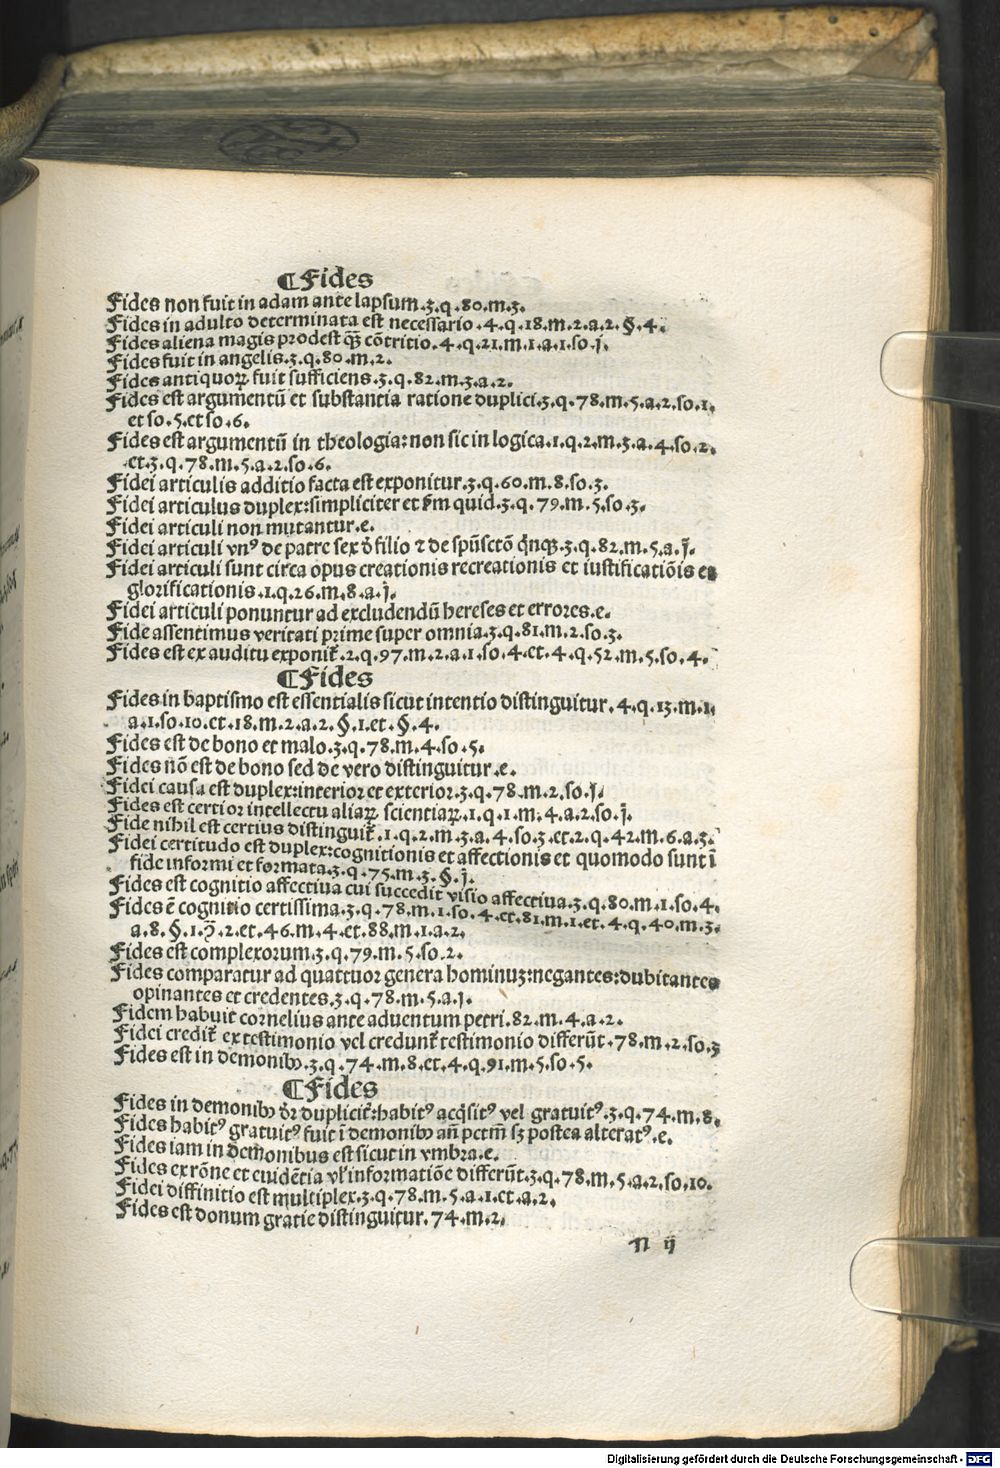 ¶Fides
Fides non fuit in adam ante lapsum.3.q.80.m.3.
Fides in adulto determinata est necessario.4.q.18.m.2.a.2.§.4.
Fides aliena magis prodest qȝ cōtritio.4.q.21.m.1.a.1.so.j.
Fides fuit in angelis.3.q.80.m.2.
Fides antiquoꝝ fuit sufficiens.3.q.82.m.3.a.2.
Fides est argumentū et substantia ratione duplici.3.q.78.m.5.a.2.so.1.
et so.5.et so.6.
Fides est argumentū in theologia:non sic in logica.1.q.2.m.3.a.4.so.2.
et.3.q.78.m.5.a.2.so.6.
Fidei articulis additio facta est exponitur.3.q.60.m.8.so.3.
Fidei articulus duplex:simpliciter et ẜm quid.3.q.79.m.5.so.3.
Fidei articuli non mutantur.e.
Fidei articuli vnꝰ de patre sex ð filio ⁊ de spūsctō q̈nqȝ.3.q.82.m.5.a.j.
Fidei articuli sunt circa opus creationis recreationis et iustificatiōis et
glorificationis.1.q.26.m.8.a.j.
Fidei articuli ponuntur ad excludendū hereses et errores.e.
Fide assentimus veritati prime super omnia.3.q.81.m.2.so.3.
Fides est ex auditu exponit̃.2.q.97.m.2.a.1.so.4.et.4.q.52.m.5.so.4.
¶Fides
Fides in baptismo est essentialis sicut intentio distinguitur.4.q.13.m.1.
a.1.so.10.et.18.m.2.a.2.§.1.et.§.4.
Fides est de bono et malo.3.q.78.m.4.so.5.
Fides nō est de bono sed de vero distinguitur.e.
Fidei causa est duplex:interior et exterior.3.q.78.m.2.so.j.
Fides est certior intellectu aliaꝝ scientiaꝝ.1.q.1.m.4.a.2.so.j.
Fide nihil est certius distinguit̃.1.q.2.m.3.a.4.so.3.et.2.q.42.m.6.a.3.
Fidei certitudo est duplex:cognitionis et affectionis et quomodo sunt ī
fide informi et formata.3.q.75.m.3.§.j.
Fides est cognitio affectiua cui succedit visio affectiua.3.q.80.m.1.so.4.
Fides ē cognitio certissima.3.q.78.m.1.so.4.et.81.m.1.et.4.q.40.m.3.
a.8.§.1.ꝯ.2.et.46.m.4.et.88.m.1.a.2.
Fides est complexorum.3.q.79.m.5.so.2.
Fides comparatur ad quattuor genera hominuȝ:negantes:dubitantes
opinantes et credentes.3.q.78.m.5.a.j.
Fidem habuit cornelius ante aduentum petri.82.m.4.a.2.
Fidei credit̃ ex testimonio vel credunt̃ testimonio differūt.78.m.2.so.3
Fides est in demonibꝰ.3.q.74.m.8.et.4.q.91.m.5.so.5.
¶Fides
Fides in demonibꝰ ðr duplicit̃:habitꝰ acq̈sitꝰ vel gratuitꝰ.3.q.74.m.8.
Fides habitꝰ gratuitꝰ fuit ī demonibꝰ añ pctm̄ sȝ postea alteratꝰ.e.
Fides iam in demonibus est sicut in vmbra.e.
Fides ex rōne et euidētia vl' informatiōe differūt.3.q.78.m.5.a.2.so.10.
Fidei diffinitio est multiplex.3.q.78.m.5.a.1.et.a.2.
Fides est donum gratie distinguitur.74.m.2.
n ij
Digitalisierung gefördert durch die Deutsche Forschungsgemeinschaft - DFG